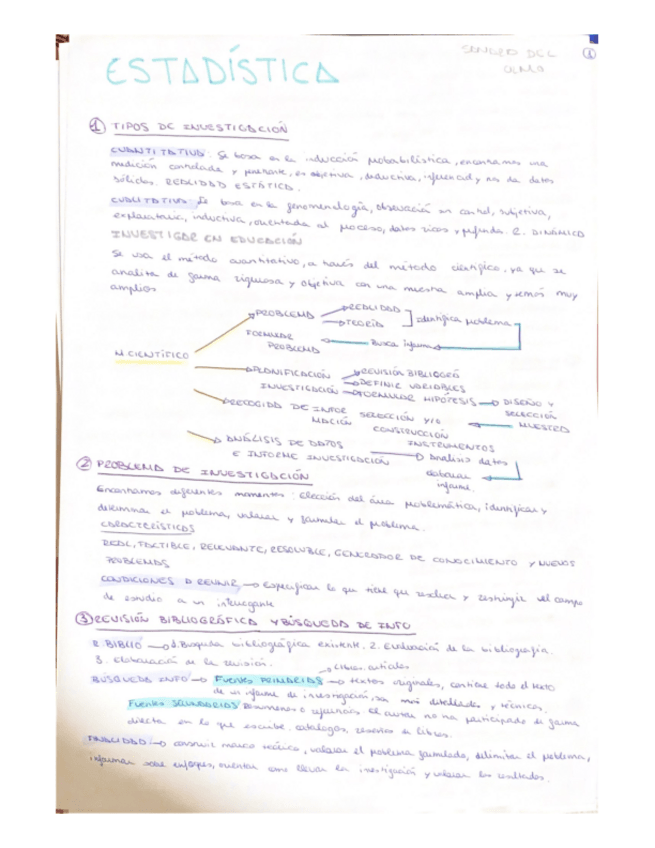 SANDRA DEL
OLMO
1
ESTADÍSTICA
1 TIPOS DE INVESTIGACIÓN
CUANTITATIVO: Se basa en la inducción probabilística, encontramos una
medición controlada y penetrante, es objetiva, deductiva, inferencial y nos da datos
sólidos. REALIDAD ESTÁTICA.
CUALITATIVO: Se basa en la fenomenología, observación sin control, subjetiva,
exploratoria, inductiva, orientada al proceso, datos ricos y profundos. R. DINÁMICO
INVESTIGAR EN EDUCACIÓN
Se usa el método cuantitativo, a través del método científico, ya que se
analiza de forma rigurosa y objetiva con una muestra amplia y muy
amplios
PROBLEMA REALIDAD
TEORÍA identifica problema
FORMULAR
PROBLEMA Busca informa
M. CIENTÍFICO
PLANIFICACIÓN REVISIÓN BIBLIOGRÁ
INVESTIGACIÓN DEFINIR VARIABLES
FORMULAR HIPÓTESIS DISEÑO Y
SELECCIÓN
MUESTRA
RECOGIDA DE INFOR
MACIÓN SELECCIÓN Y/O
CONSTRUCCIÓN
INSTRUMENTOS
ANÁLISIS DE DATOS
E INFORME INVESTIGACIÓN Análisis datos
elaborar
informe.
2 PROBLEMA DE INVESTIGACIÓN
Encontramos diferentes momentos: Elección del área problemática, identificar y
determinar el problema, valorar y formular el problema.
CARACTERÍSTICAS
REAL, FACTIBLE, RELEVANTE, RESOLUBLE, GENERADOR DE CONOCIMIENTO Y NUEVOS
PROBLEMAS
CONDICIONES A REUNIR → Especificar lo que tiene que y restringir el campo
de estudio a un interrogante
3 REVISIÓN BIBLIOGRÁFICA Y BÚSQUEDA DE INFO
R. BIBLIO → 1. Busqueda bibliográfica existente, 2. Evaluación de la bibliografía.
3. Elaboración de la revisión.
Libros, artículos
BÚSQUEDA INFO → FUENTES PRIMARIAS → textos originales, contiene todo el texto
de un informe de investigación, son más detallados y técnicos.
FUENTES SECUNDARIAS Resúmenes o El autor no ha participado de forma
directa en lo que escribe. catálogos, reseñas de libros.
FINALIDAD → construir marco teórico, valorar el problema formulado, delimitar el problema,
informar sobre enfoques, orientar como llevar la investigación y valorar los resultados.